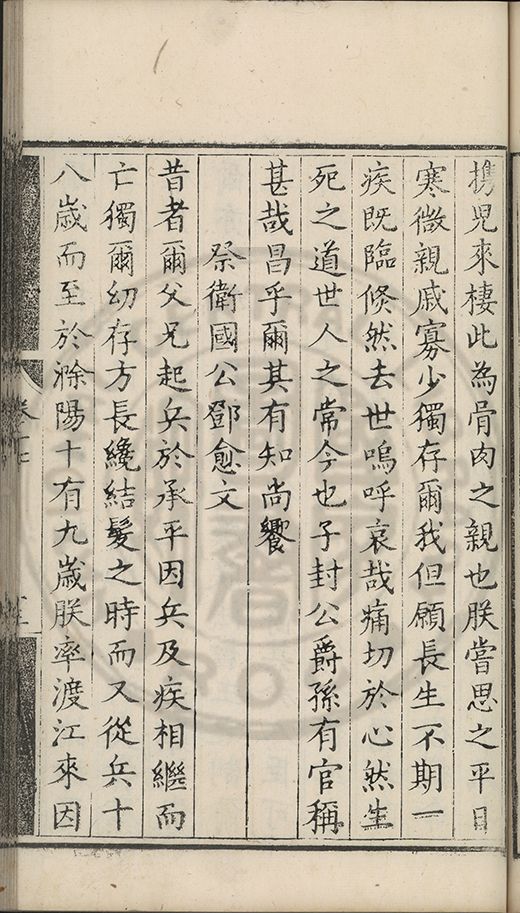 携児來棲此為骨肉之親也朕嘗思之平日
寒微親戚寡少獨存爾我但願長生不期一
疾既臨倏然去世嗚呼哀哉痛切於心然生
死之道世人之常今也子封公爵孫有官稱
甚哉昌乎爾其有知尚饗
祭衛國公鄧愈文
昔者爾父兄起兵於承平因兵及疾相繼而
亡獨爾幼存方長纔結髮之時而又從兵十
八歲而至於滁陽十有九歲朕率渡江來因